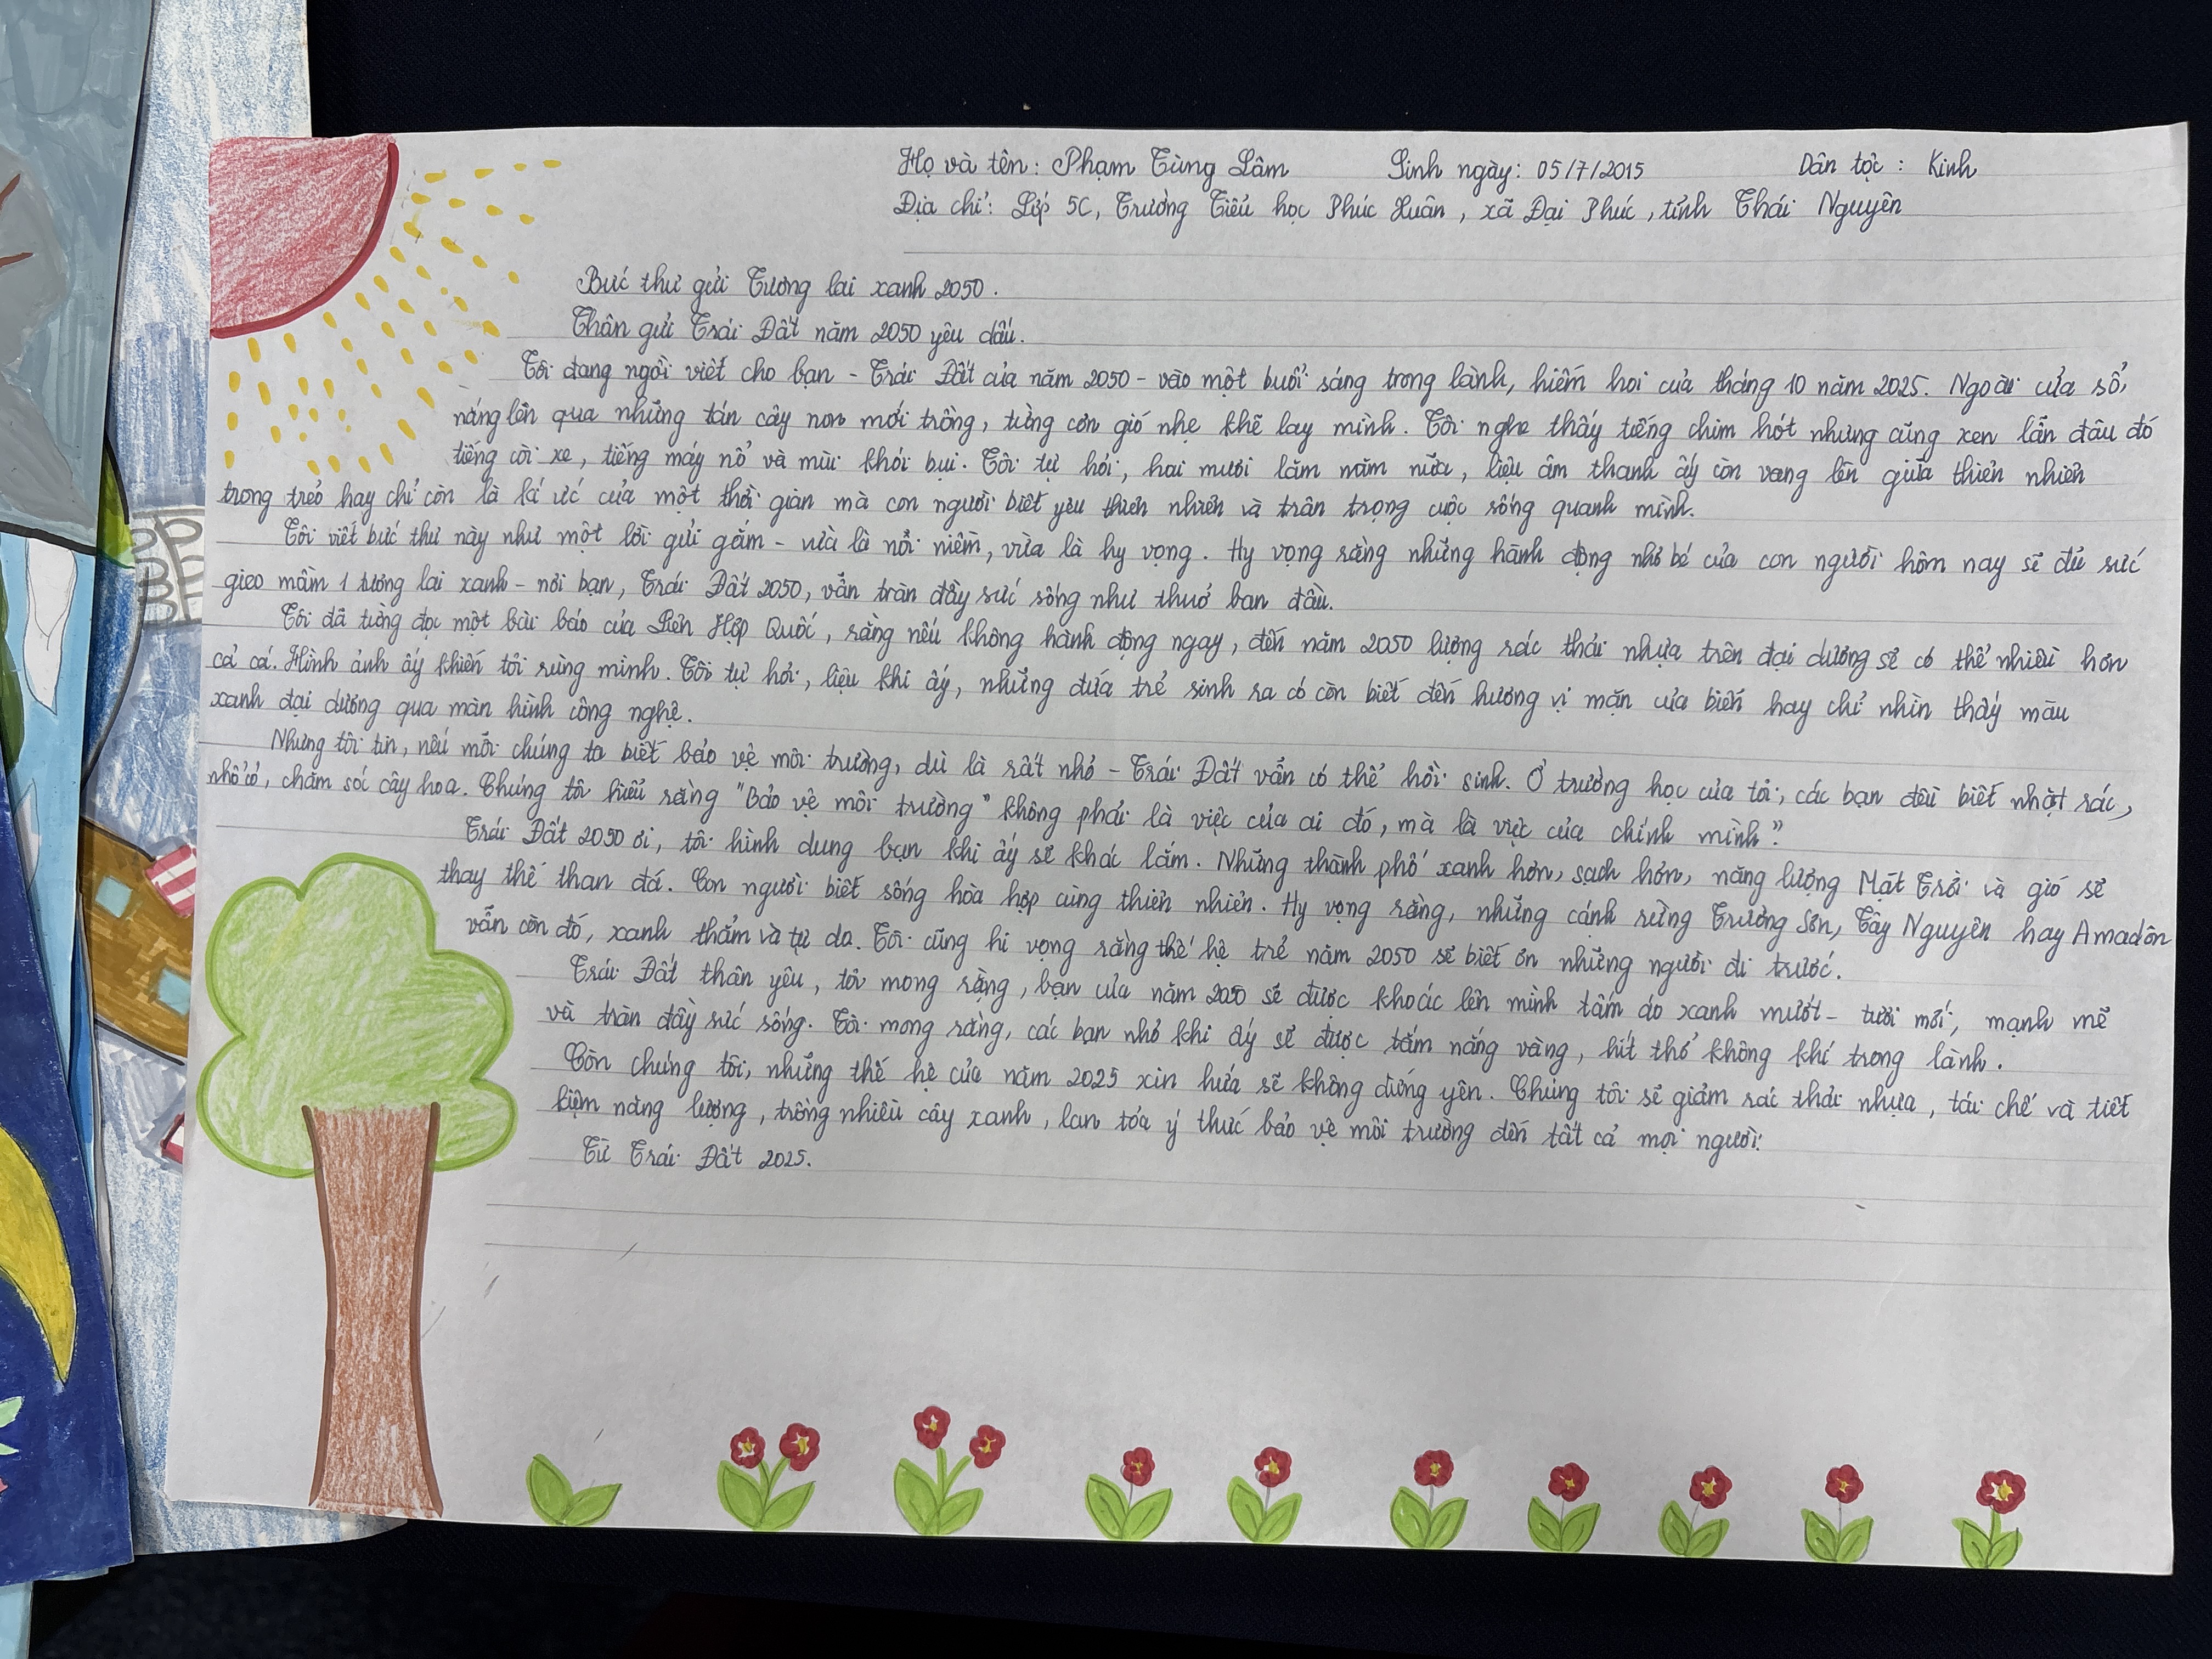 Họ và tên: Phạm Tùng Lâm Sinh ngày: 05/7/2015 Dân tộc: Kinh
Địa chỉ: Lớp 5C, Trường Tiểu học Phúc Xuân, xã Đại Phúc, tỉnh Thái Nguyên
Bức thư gửi Tương lai xanh 2050.
Thân gửi Trái Đất năm 2050 yêu dấu.
Tôi đang ngồi viết cho bạn - Trái Đất của năm 2050 - vào một buổi sáng trong lành, hiếm hoi của tháng 10 năm 2025. Ngoài cửa sổ,
nắng lên qua những tán cây non mới trồng, từng cơn gió nhẹ khẽ lay mình. Tôi nghe thấy tiếng chim hót nhưng cũng xen lẫn đâu đó
tiếng còi xe, tiếng máy nổ và mùi khói bụi. Tôi tự hỏi, hai mươi lăm năm nữa, liệu âm thanh ấy còn vang lên giữa thiên nhiên
trong trẻo hay chỉ còn là kí ức của một thời gian mà con người biết yêu thiên nhiên và trân trọng cuộc sống quanh mình.
Tôi viết bức thư này như một lời gửi gắm - vừa là nỗi niềm, vừa là hy vọng. Hy vọng rằng những hành động nhỏ bé của con người hôm nay sẽ đủ sức
gieo mầm 1 tương lai xanh - nơi bạn, Trái Đất 2050, vẫn tràn đầy sức sống như thuở ban đầu.
Tôi đã từng đọc một bài báo của Liên Hợp Quốc, rằng nếu không hành động ngay, đến năm 2050 lượng rác thải nhựa trên đại dương sẽ có thể nhiều hơn
cả cá. Hình ảnh ấy khiến tôi rùng mình. Tôi tự hỏi, liệu khi ấy, những đứa trẻ sinh ra có còn biết đến hương vị mặn của biển hay chỉ nhìn thấy màu
xanh đại dương qua màn hình công nghệ.
Nhưng tôi tin, nếu mỗi chúng ta biết bảo vệ môi trường, dù là rất nhỏ - Trái Đất vẫn có thể hồi sinh. Ở trường học của tôi, các bạn đều biết nhặt rác,
nhổ cỏ, chăm sóc cây hoa. Chúng tôi hiểu rằng "Bảo vệ môi trường" không phải là việc của ai đó, mà là việc của chính mình"
Trái Đất 2050 ơi, tôi hình dung bạn khi ấy sẽ khác lắm. Những thành phố xanh hơn, sạch hơn, năng lượng Mặt Trời và gió sẽ
thay thế than đá. Con người biết sống hòa hợp cùng thiên nhiên. Hy vọng rằng, những cánh rừng Trường Sơn, Tây Nguyên hay Amadôn
vẫn còn đó, xanh thẳm và tự do. Tôi cũng hi vọng rằng thế hệ trẻ năm 2050 sẽ biết ơn những người đi trước.
Trái Đất thân yêu, tôi mong rằng, bạn của năm 2050 sẽ được khoác lên mình tấm áo xanh mướt - tươi mới, mạnh mẽ
và tràn đầy sức sống. Tôi mong rằng, các bạn nhỏ khi ấy sẽ được tắm nắng vàng, hít thở không khí trong lành.
Còn chúng tôi, những thế hệ của năm 2025 xin hứa sẽ không đứng yên. Chúng tôi sẽ giảm rác thải nhựa, tái chế và tiết
kiệm năng lượng, trồng nhiều cây xanh, lan tỏa ý thức bảo vệ môi trường đến tất cả mọi người.
Từ Trái Đất 2025.